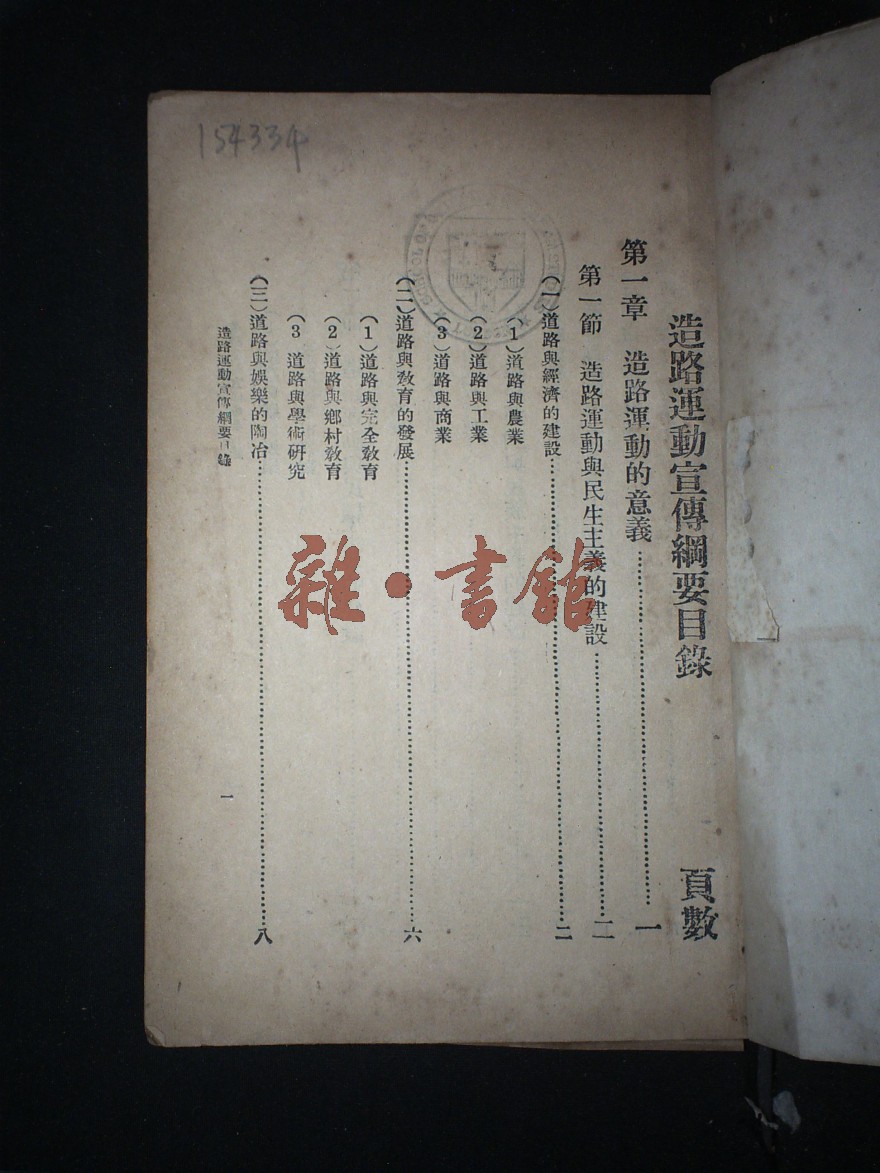 造路運動宣傳綱要目錄 頁數
第一章 造路運動的意義……………………一
第一節 造路運動與民生主義的建設……………………二
(一)道路與經濟的建設……………………二
(1)道路與農業
(2)道路與工業
(3)道路與商業
(二)道路與教育的發展……………………六
(1)道路與完全教育
(2)道路與鄉村教育
(3)道路與學術研究
(三)道路與娛樂的陶冶……………………八
造路運動宣傳綱要目錄 一
154334
雜·書館